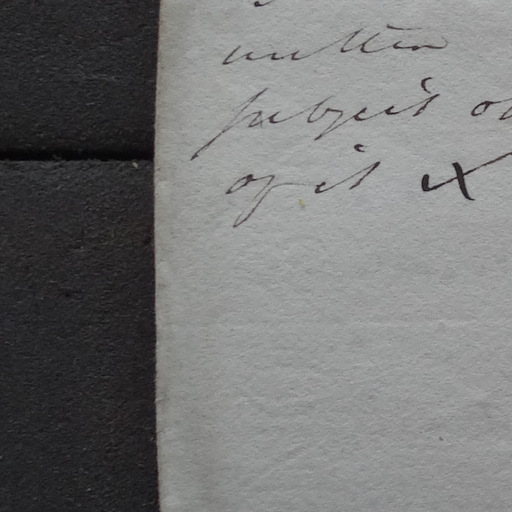 written
subject
of it x